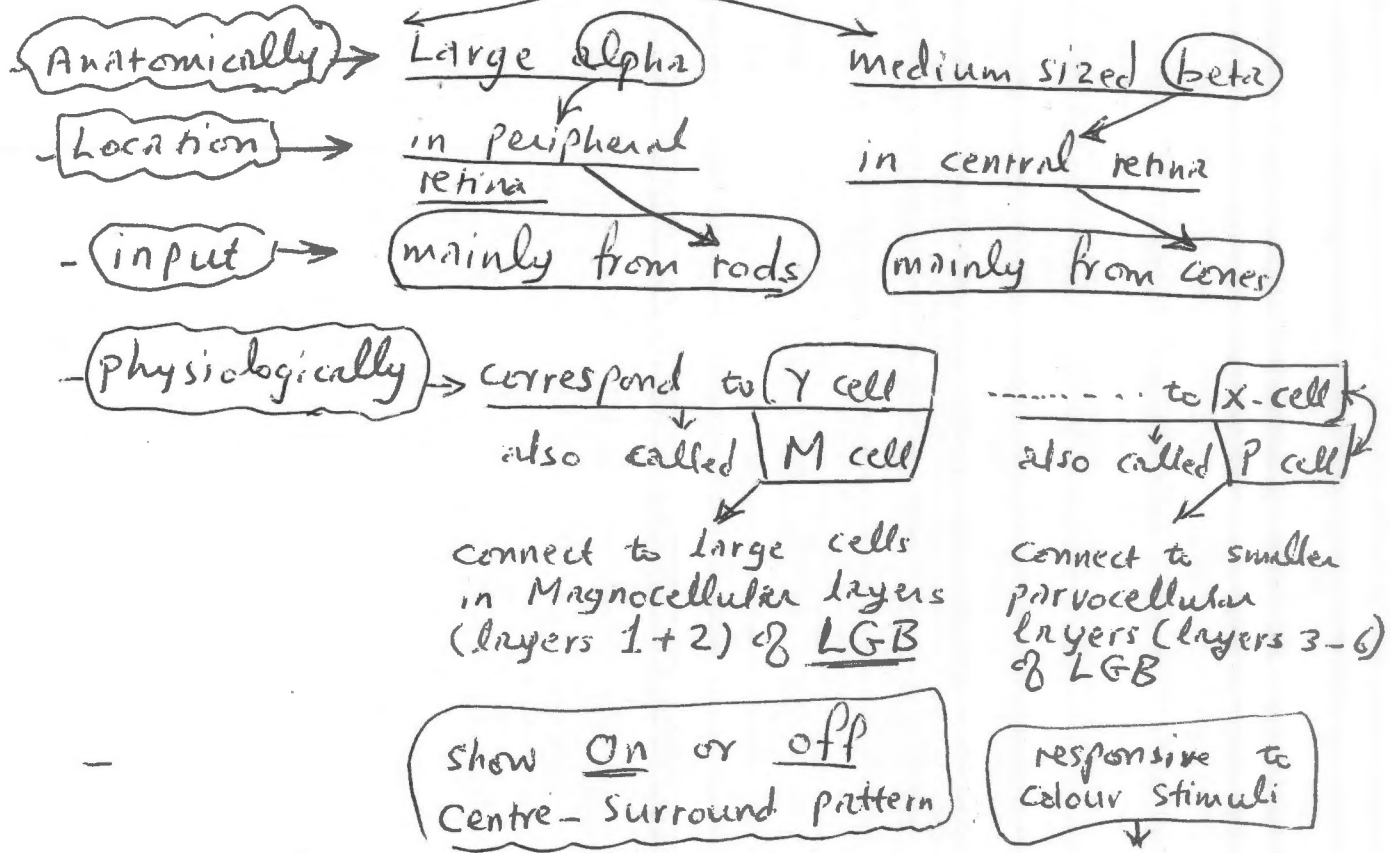 - Anatomically → Large alpha medium sized beta
- Location → in peripheral retina in central retina
- input → mainly from rods mainly from cones
- physiologically → correspond to Y cell -------- to X-cell
also called M cell also called P cell
connect to large cells
in Magnocellular layers
(layers 1+2) of LGB
connect to smaller
parvocellular
layers (layers 3-6)
of LGB
- show On or off
Centre-Surround pattern
responsive to
colour stimuli